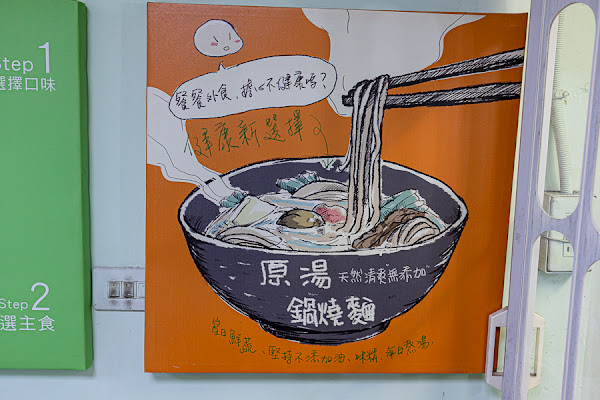 Step 1
選擇口味
Step 2
選主食
餐餐外食，擔心不健康嗎？
健康新選擇
原湯 天然清爽無添加
鍋燒麵
當日鮮蔬、堅持不添加油、味精、每日熬湯